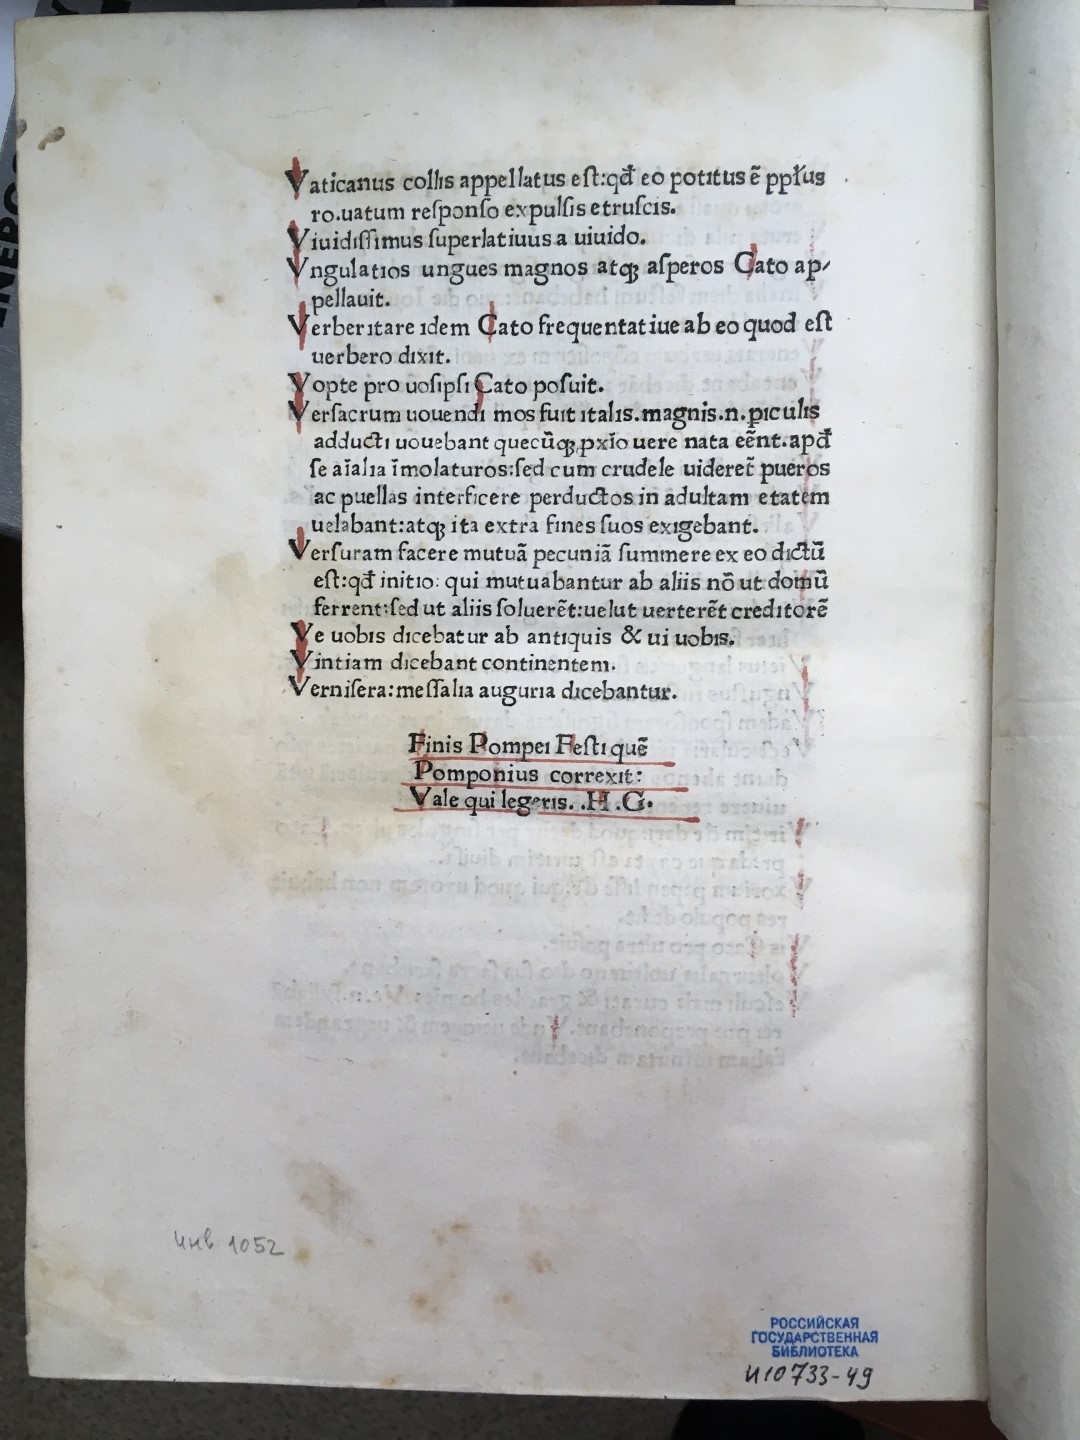 Vaticanus collis appellatus eſt:qđ eo potitus ē ppłus
ro.uatum reſponſo expulſis etruſcis.
Viuidiſſimus ſuperlatiuus a uiuido.
Vngulatios ungues magnos atqꝫ aſperos Cato ap⸗
pellauit.
Verberitare idem Cato frequentatiue ab eo quod eſt
uerbero dixit.
Vopte pro uoſipſi Cato poſuit.
Verſacrum uouendi mos fuit italis.magnis.n.piculis
adducti uouebant quecūqꝫ ꝓxīo uere nata eēnt.apđ
ſe aīalia īmolaturos:ſed cum crudele uideret̄ pueros
ac puellas interficere perductos in adultam etatem
uelabant:atqꝫ ita extra fines ſuos exigebant.
Verſuram facere mutuā pecuniā ſummere ex eo dictū
eſt:qđ initio: qui mutuabantur ab aliis nō ut domū
ferrent:ſed ut aliis ſoluerēt:uelut uerterēt creditorē
Ve uobis dicebatur ab antiquis & ui uobis.
Vintiam dicebant continentem.
Verniſera:meſſalia auguria dicebantur.
Finis Pompei Feſti quē
Pomponius correxit:
Vale qui legeris. .H.G.
инв 1052
РОССИЙСКАЯ
ГОСУДАРСТВЕННАЯ
БИБЛИОТЕКА
И10733-49